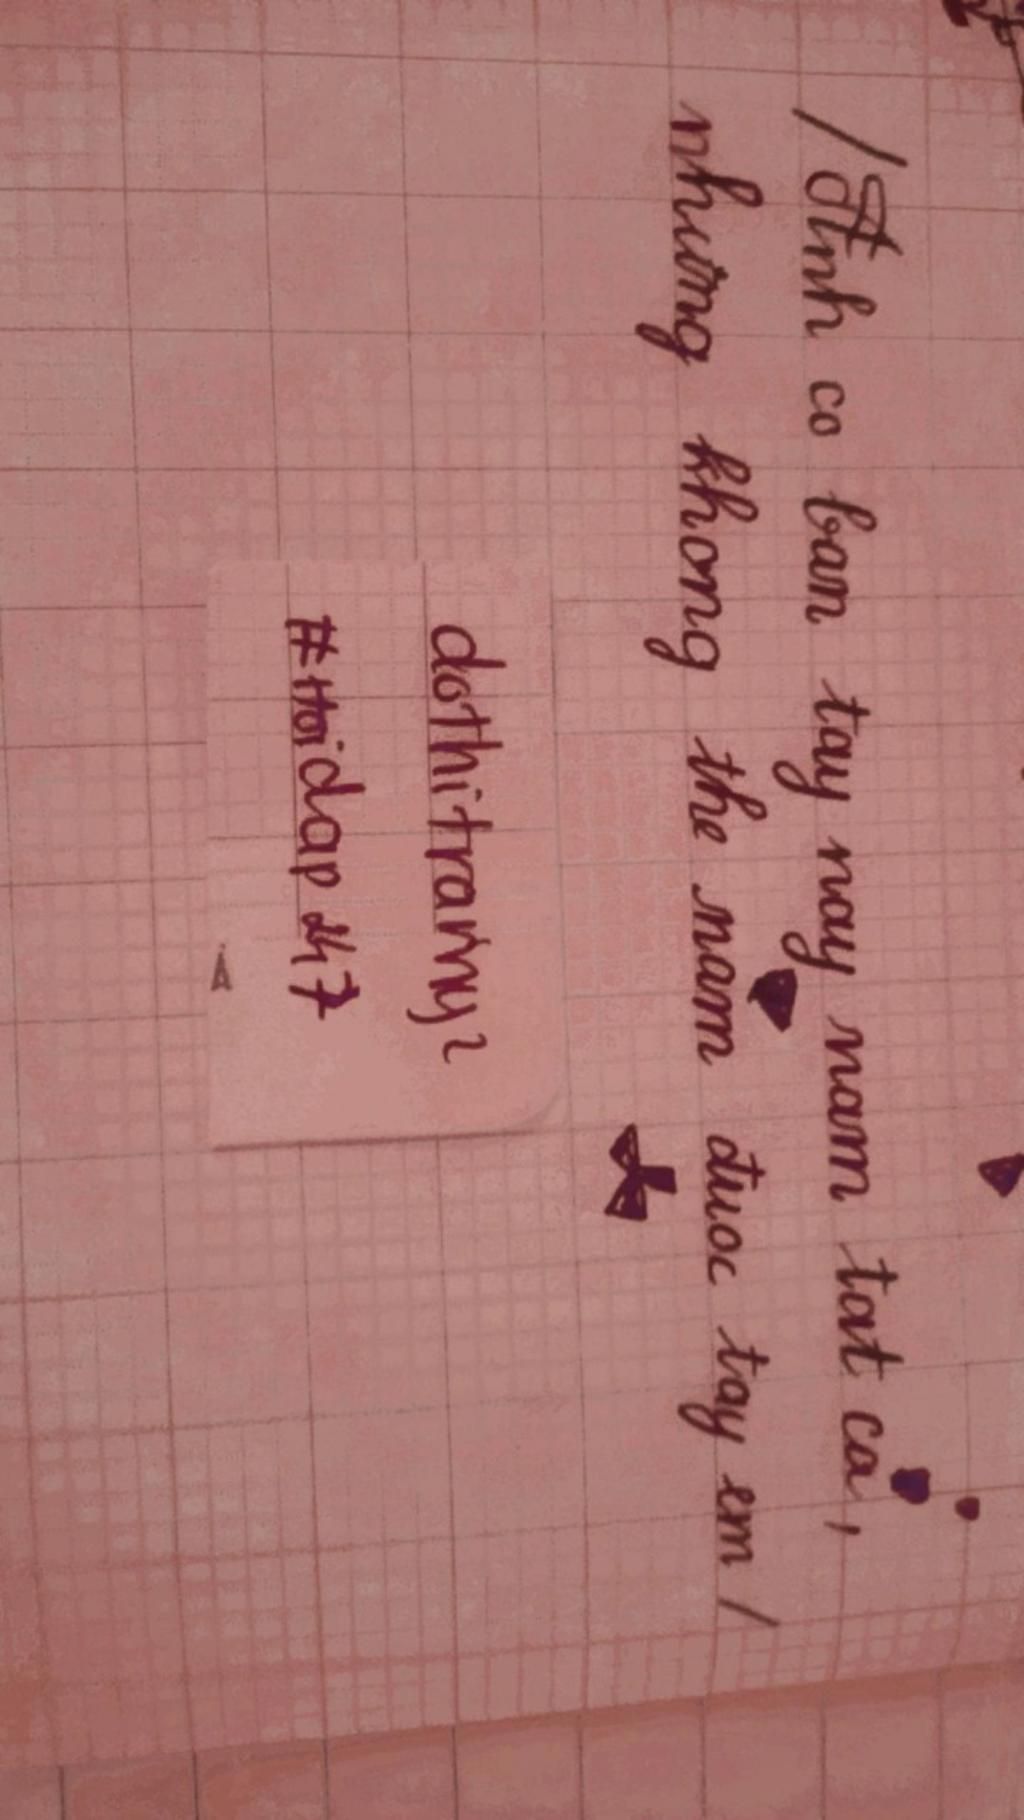 /Anh co ban tay nay nam tat ca,
nhưng khong the nam đuoc tay em/
dothitramy2
#Hoidap247